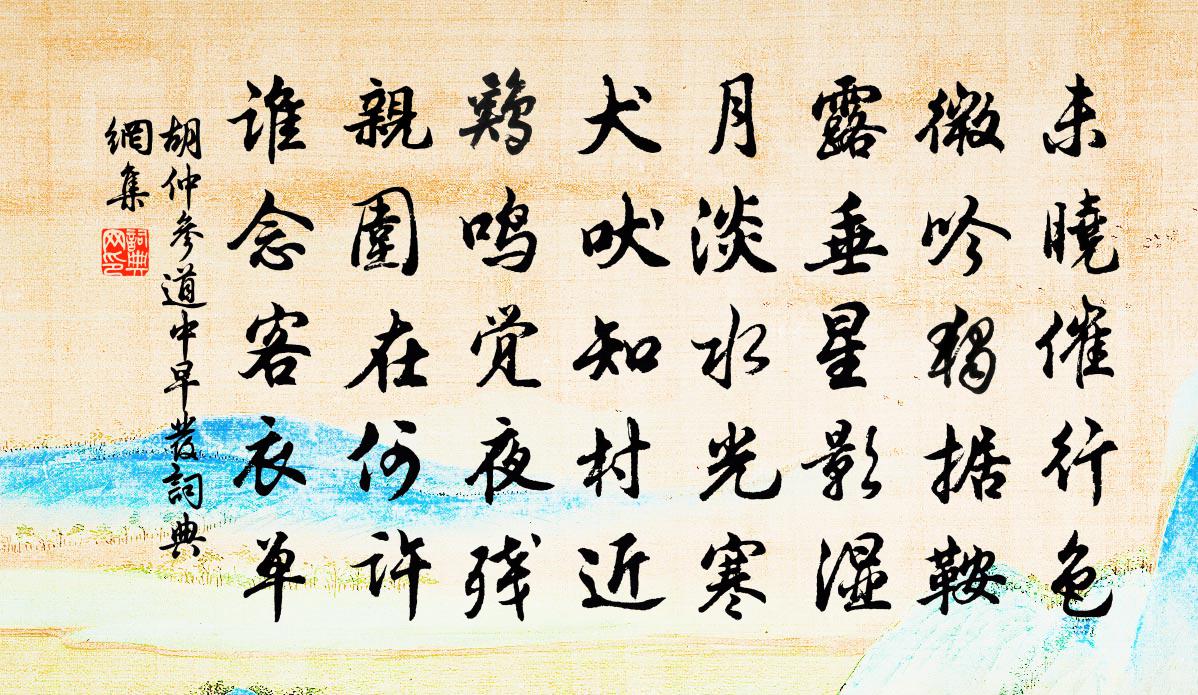 未曉催行色
微吟獨据鞍
露垂星影濕
月淡水光寒
犬吠知村近
鷄鳴觉夜残
親圍在何許
谁念客衣单
胡仲參道中早發詞典
網集
詞典
网印